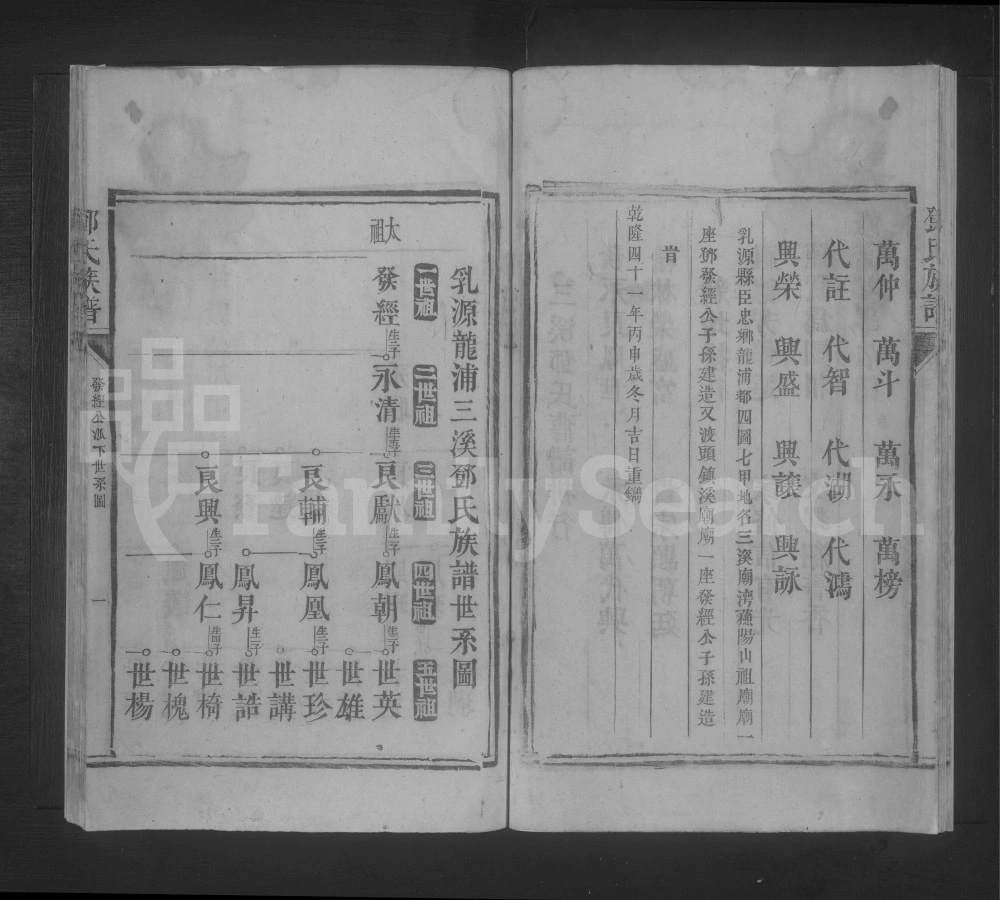 鄧氏族譜
萬仲 萬斗 萬永 萬榜
代註 代智 代湖 代鴻
興榮 興盛 興讓 興詠
乳源縣臣忠鄉龍浦都四圖七甲地名三溪廟湾蘓陽山祖廟廟一
座鄧發經公子孫建造又渡頭鎮溪廟廟一座發經公子孫建造
肯
乾隆四十一年丙申歲冬月吉日重鐫
乳源龍浦三溪鄧氏族譜世系圖
一世祖 二世祖 三世祖 四世祖 五世祖
太祖 發經 生子 永清 生子 良獻 生子 鳳朝 生子 世英
世雄
良輔 生子 鳳凰 生子 世珍
世講
鳳昇 生子 世誥
良興 生子 鳳仁 生子 世椅
世槐
世楊
鄧氏族譜 發經公派下世系圖 一
FamilySearch